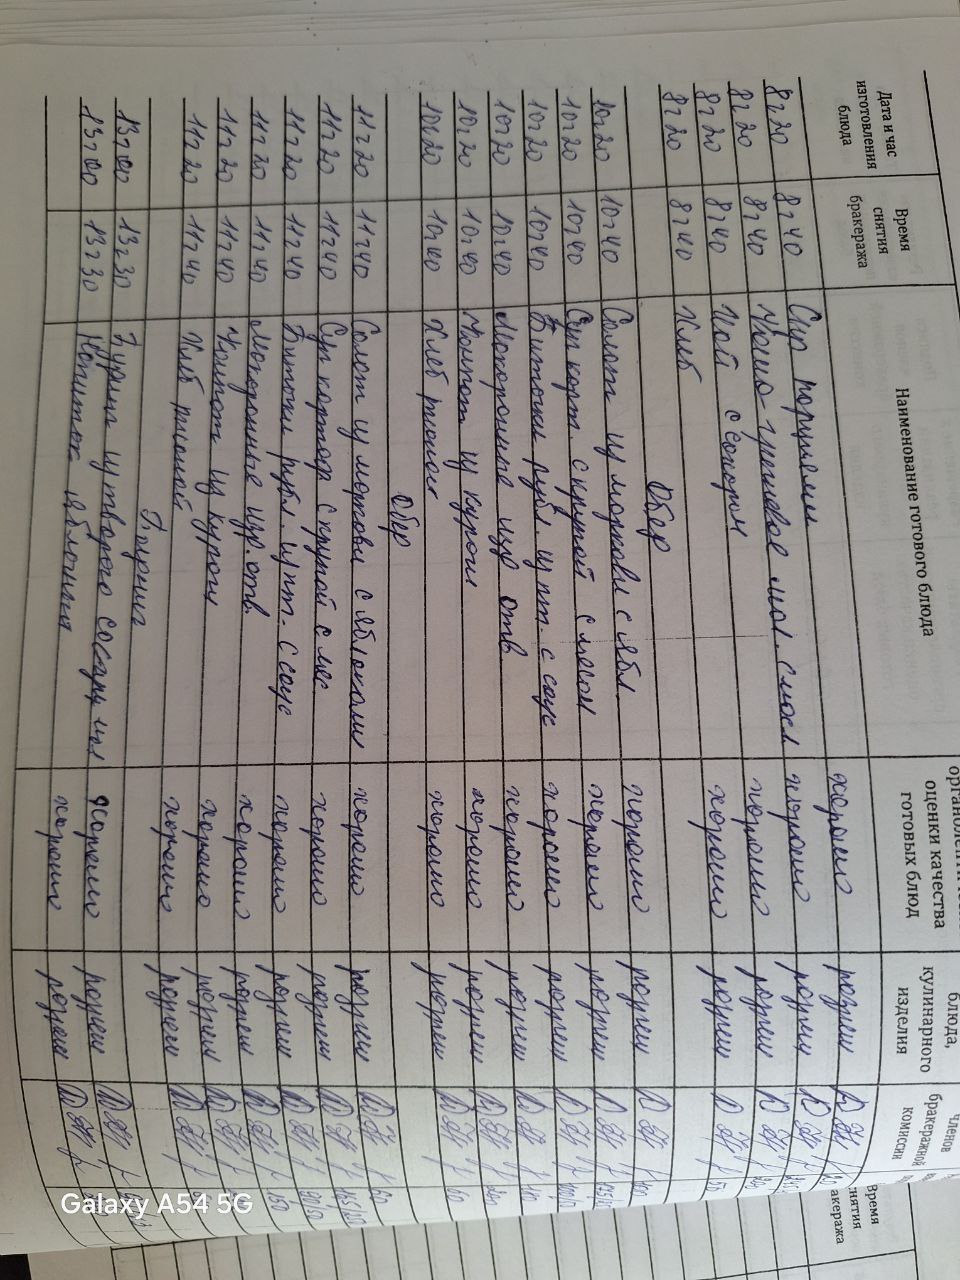 Дата и час изготовления блюда | Время снятия бракеража | Наименование готового блюда | оценки качества готовых блюд | блюда, кулинарного изделия | членов бракеражной комиссии | Время снятия бракеража
8г20 8г40 Сыр порциями хорошо разреш
8г20 8г40 Каша гречневая мол. с масл хорошо разреш
8г20 8г40 Чай с сахаром хорошо разреш
8г20 8г40 Хлеб хорошо разреш
Обед
10г20 10г40 Салат из моркови с ябл хорошо разреш
10г20 10г40 Суп карт. с крупой с мясом хорошо разреш
10г20 10г40 Биточки рубл. из пт. с соус хорошо разреш
10г20 10г40 Макароные изд отв хорошо разреш
10г20 10г40 Компот из кураги хорошо разреш
10г20 10г40 Хлеб ржаной хорошо разреш
Обед
11г20 11г40 Салат из моркови с яблоками хорошо разреш
11г20 11г40 Суп картоф с крупой с мяс хорошо разреш
11г20 11г40 Биточки рубл. из пт. с соус хорошо разреш
11г20 11г40 Макаронные изд. отв. хорошо разреш
11г20 11г40 Компот из кураги хорошо разреш
11г20 11г40 Хлеб ржаной хорошо разреш
13г00 13г30 из творога со хорошо разреш
13г00 13г30 Напиток яблочный хорошо разреш
Galaxy A54 5G